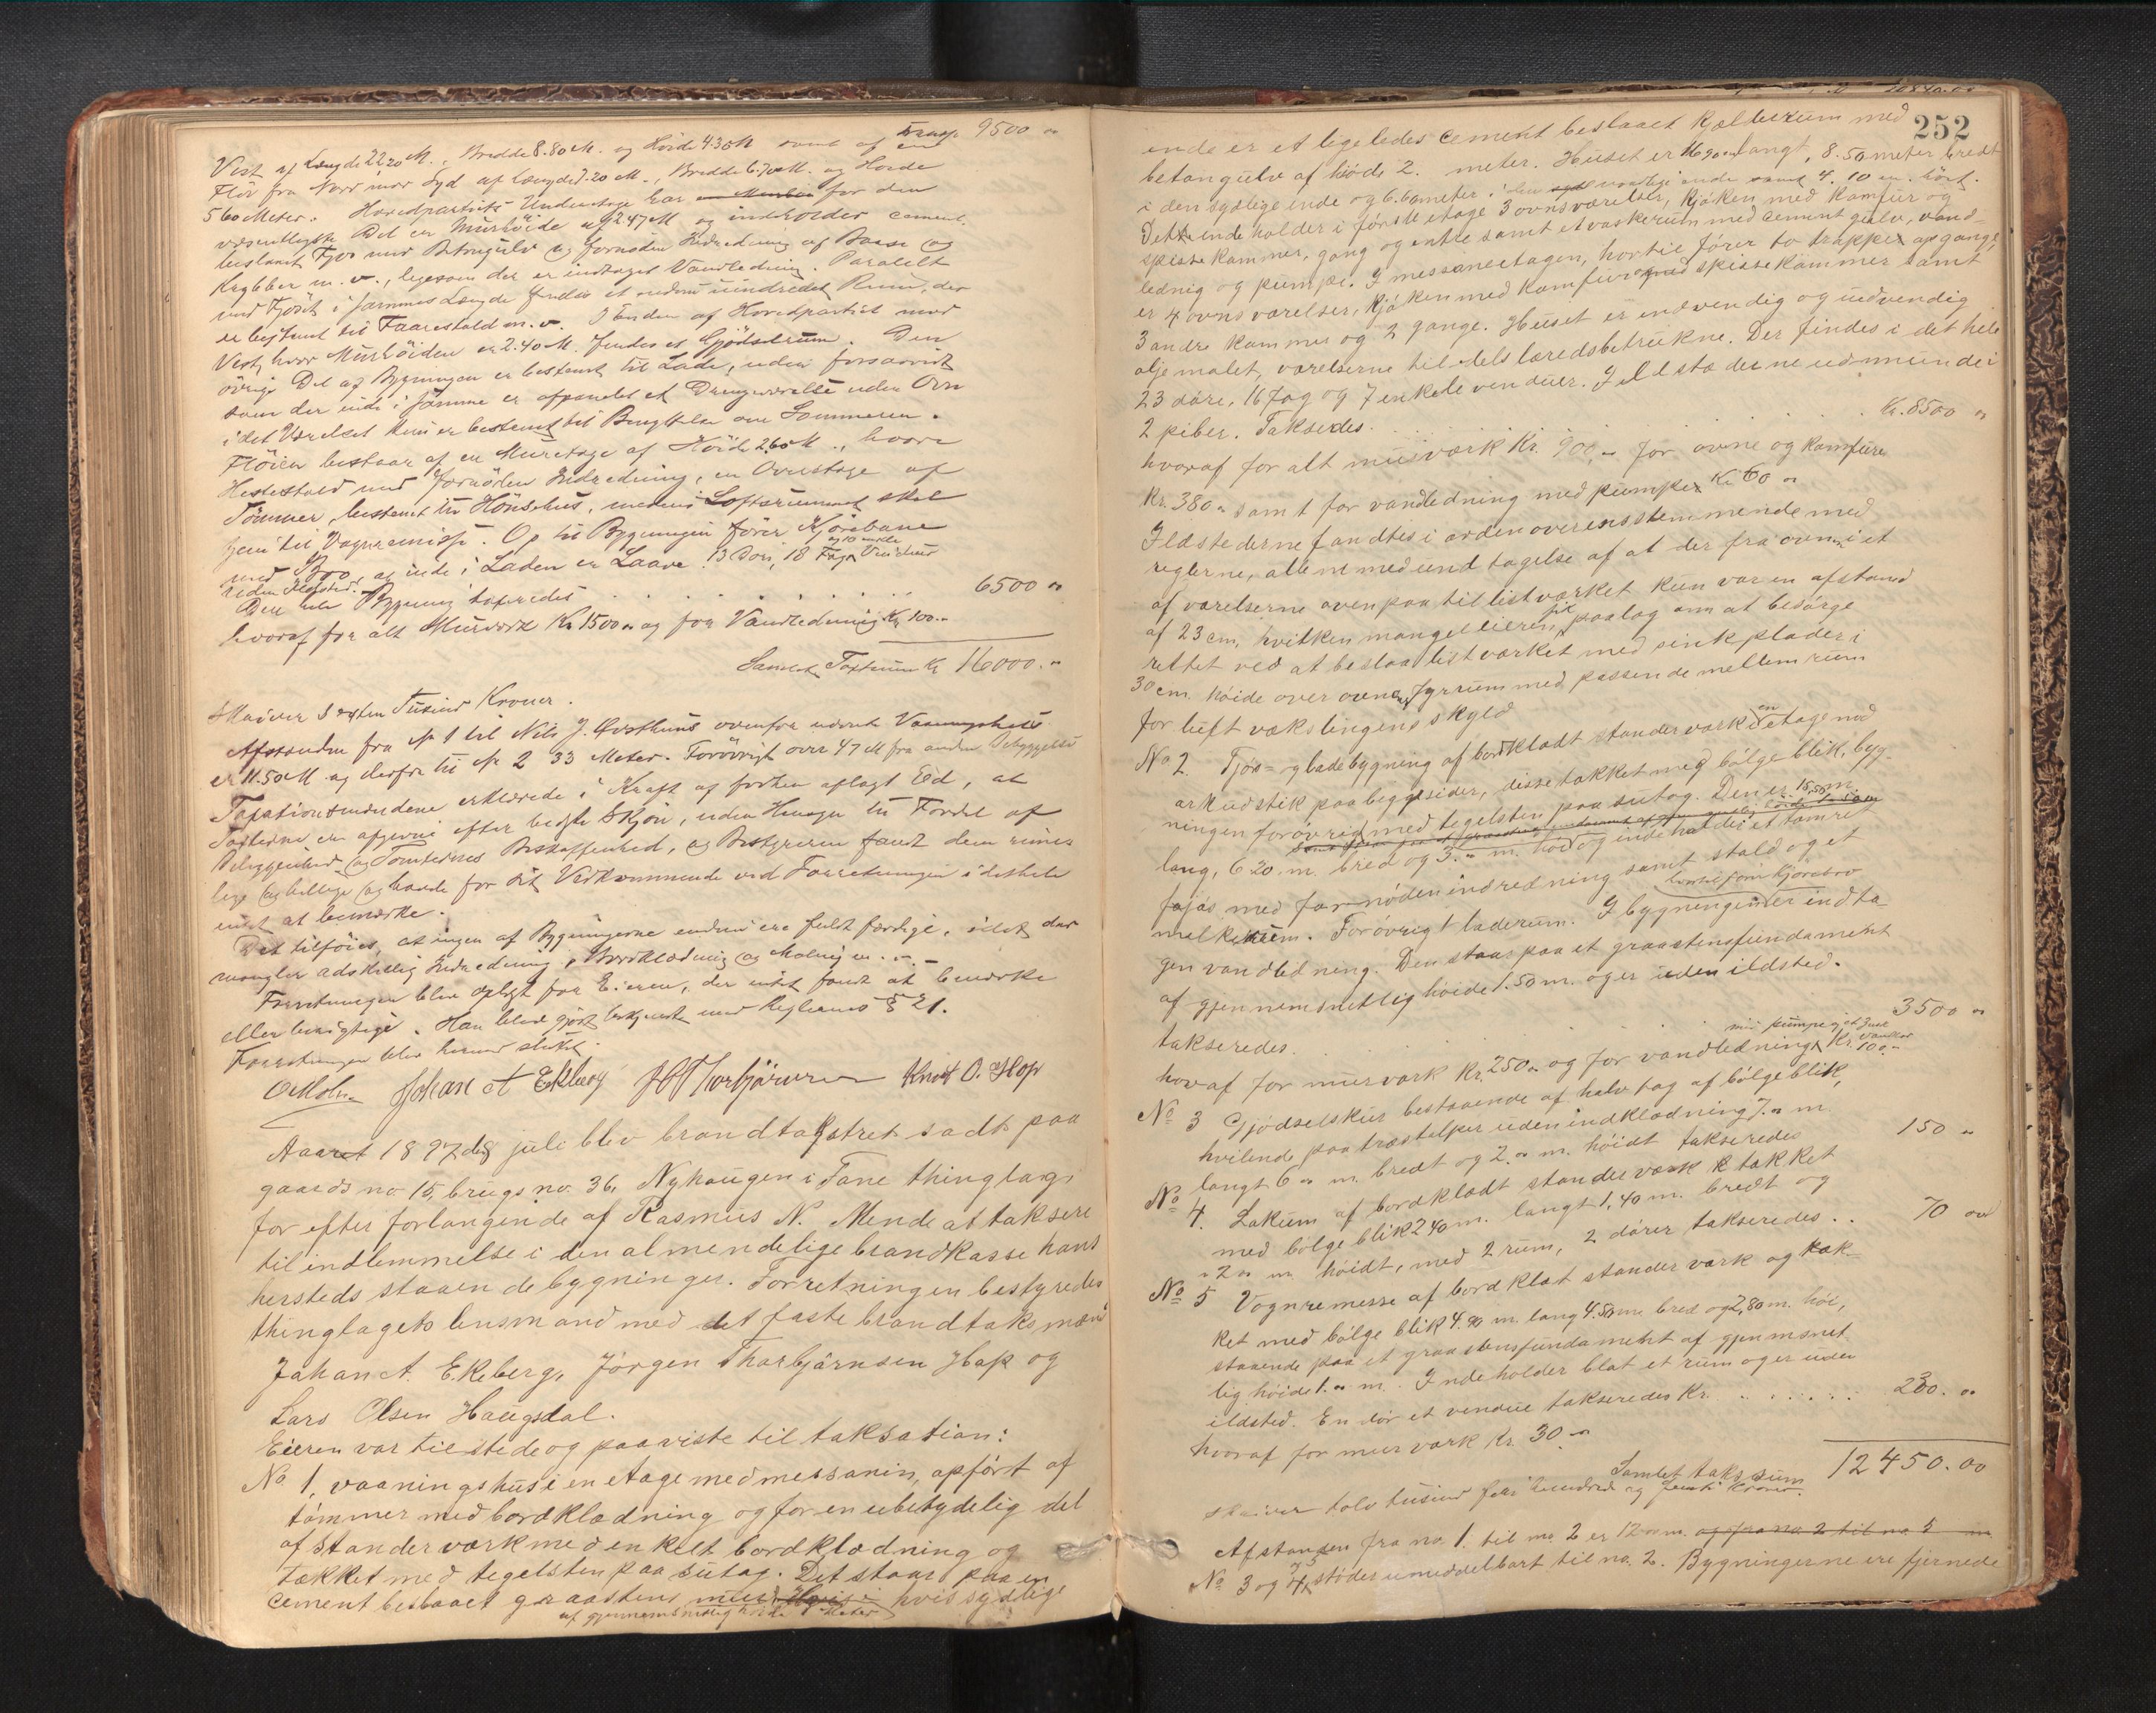 Transp. 9500 "
Vest af Længde 22.20 M., Bredde 8.80 M. og Höide 4.30 M samt af en
Flöi fra Nord mod Syd af Længde 7.20 M., Bredde 6.70 M. og Höide
5.60 Meter. Hovedpartiets Underetage har for den
væsentligste Del en Murhöide af 2.47 M og indeholder cement
beslaaet Fjøs med Betongulv og fornöden Indredning af Baase og
Krybber m. v., ligesom der er indlaget Vandledning. Paralelt
med Fjöset i sammes Længde findes et uindredet Rum, der
er bestemt til Faarestald m. v. I Enden af Hovedpartiet mod
Vest, hvor Murhöiden er 2.40 M. findes et Gjödselrum. Den
övrige Del af Bygningen er bestemt til Lade, uden forsaavidt
som der inde i samme er afpanelet et Drengeværelse uden Ovn
idet Værelset kun er bestemt til Benyttelse om Sommeren.
Flöien bestaar af en Muretage af Höide 2.60 M., hvori
Hestestald med fornöden Indredning, en Overetage af
Tömmer, bestemt til Hönsehus, medens Loftsrummet skal
tjene til Vognremisse. Op til Bygningen förer Kjörebane
med Bro, og inde i Laden er Laave. 13 Döre, 18 Fag og 10 enkle Vinduer
uden Ildsted.
Den hele Bygning taxeredes . . . . . . . . . 6500 "
hvoraf for alt Murværk Kr 1500 " og for Vandledning Kr 100. "
Samlet Taxtsum Kr 16000. "
skriver Sexten Tusind Kroner.
Afstanden fra No 1 til Nils J. Övsthuns ovenfor nævnte Vaaningshus
er 11.50 M og derfra til No 2 33 Meter. Forövrigt over 47 M fra anden Bebyggelse
Taxationsmændene erklærede i Kraft af forhen aflagt Ed, at
Taxterne ere afgivne efter bedste Skjön, uden Hensyn til Fordel af
Beliggenhed og Tomternes Beskaffenhed, og Bestyreren fandt dem rime-
lige og billige og havde for sit Vedkommende ved Forretningen idethele
intet at bemærke.
Det tilföies, at ingen af Bygningerne endnu ere fuldt færdige, idet der
mangler adskillig Indredning, Bordklædning og Maling m. v. -
Forretningen blev oplæst for Eieren, der intet fandt at bemærke
eller berigtige. Han blev gjort bekjendt med Reglernes § 21.
Forretningen blev hermed sluttet.
O Molen Johan A Ekberg J T Thorbjörnsen Knut O. Hop
Aaret 1897 d 8 juli blev brandtakstret sadt paa
gaards no 15, brugs no. 36, Nyhaugen i Fane thinglag
for efter forlangende af Rasmus N. Mende at taksere
til indlemmelse i den almendelige brandkasse hans
hersteds staaende bygninger. Forretningen bestyredes
thinglagets lensmand med det faste brandtaksmænd
Johan A. Ekeberg, Jörgen Thorbjörnsen Hop og
Lars Olsen Haugsdal.
Eieren var tilstede og paaviste til taksation:
No. 1, vaaningshus i en etage med messanin, opfört af
tömmer med bordklædning og for en ubetydelig del
af standerværk med enkelt bordklædning og
tækket med tegelsten paa sutag. Det staar paa en
cement beslaaet graastens mur hvis sydlige
af gjennemsnitlig höide Meter
252
ende er et ligeledes cement beslaaet kjælderrum med
betongulv af höide 2. meter. Huset er 16.90 m langt, 8.50 meter bredt
i den sydlige ende og 6.60 meter i den nordlige ende samt 4.10 m. höit.
Dette indeholder i förste etage 3 ovnsværelser, kjöken med komfur og
spisekammer, gang og entre samt et vaskerum med cement gulv, vand-
ledning og pumpe. I messaneetagen, hortil förer to trapper opgange
er 4 ovns værelser, kjöken med komfur og med spissekammer samt
3 andre kammer og 2 gange. Huset er indvendig og udvendig
oljemalet, værelserne til dels læredsbetrukne. Der findes i det hele
23 döre, 16 fag og 7 enkele venduer. Ildstæderne udmunder i
2 piber. Taksedes . . . . . . Kr. 8500 "
hvoraf for alt muværk Kr. 900. " for ovne og komfure
Kr. 380 " samt for vandledning med pumpe Kr 60 "
Ildstederne fandtes i orden overensstemmende med
reglerne, alene med undtagelse af at der fra ovnen i et
af værelserne ovenpaa til listværket kun var en afstand
af 23 cm, hvilken mangel eieren fik paalag om at besörge
rettet ved at beslaa listværket med sinkplader i
30 cm. höide over ovnens fyrrum med passende mellemrum
for luftvækslingens skyld
No 2. Fjös- og ladebygning af bordklædt standerværk i en etage med
ark udstik paa begge sider, disse tækket med bölgeblik, byg-
ningen forövrigt med tegelsten paa sutag. Den er 15,50 m
lang, 6.20 m. bred og 3. " m. höi og indeholder et tömret
fjös med fornöden indredning samt stald og et
melkerum. Forövrigt laderum. hvortil förer kjörebro I bygningen er indta-
gen vandledning. Den staar paa et graastensfundament
af gjennemsnetlig höide 1.50 m. og er uden ildsted.
takseredes . . . . . . 3500 "
hovaf for mur værk Kr. 250 " og for vandledning med pumpe Kr. 100. "
No 3 Gjödselskur bestaaende af halv tag af bölgeblik,
hvilende paa træstolper uden indklædning 7. " m
langt 6 " m. bredt og 2. " m. höidt takseredes 150 "
No 4. Lokum af bordklædt standerværk tækket
med bölgeblik 2.40 m. langt 1,40 m. bredt og
2 " m. höidt, med 2 rum, 2 dörer takseredes . . 70 "
No 5 Vognremesse af bordklæt standerværk og tæk-
ket med bölgeblik 4.90 m. lang 4.50 m bred og 2,80 m. höi,
staaende paa et graastensfundament af gjenmsnet
lig höide 1. " m. Indeholder blot et rum og er uden
ildsted. En dör et vendue takseredes Kr. . . . . . . 230. "
hvoraf for mur værk Kr. 30 "
Samlet takssum 12450.00
skriver tolv tusind fire hundrede og femti Kroner.
Afstanden fra no. 1. til no. 2 er 12 " m. og fra no. 2 til no. 5 m
No 3 og 4 og 5 stöder umiddelbart til no. 2. Bygningerne ere fjernede